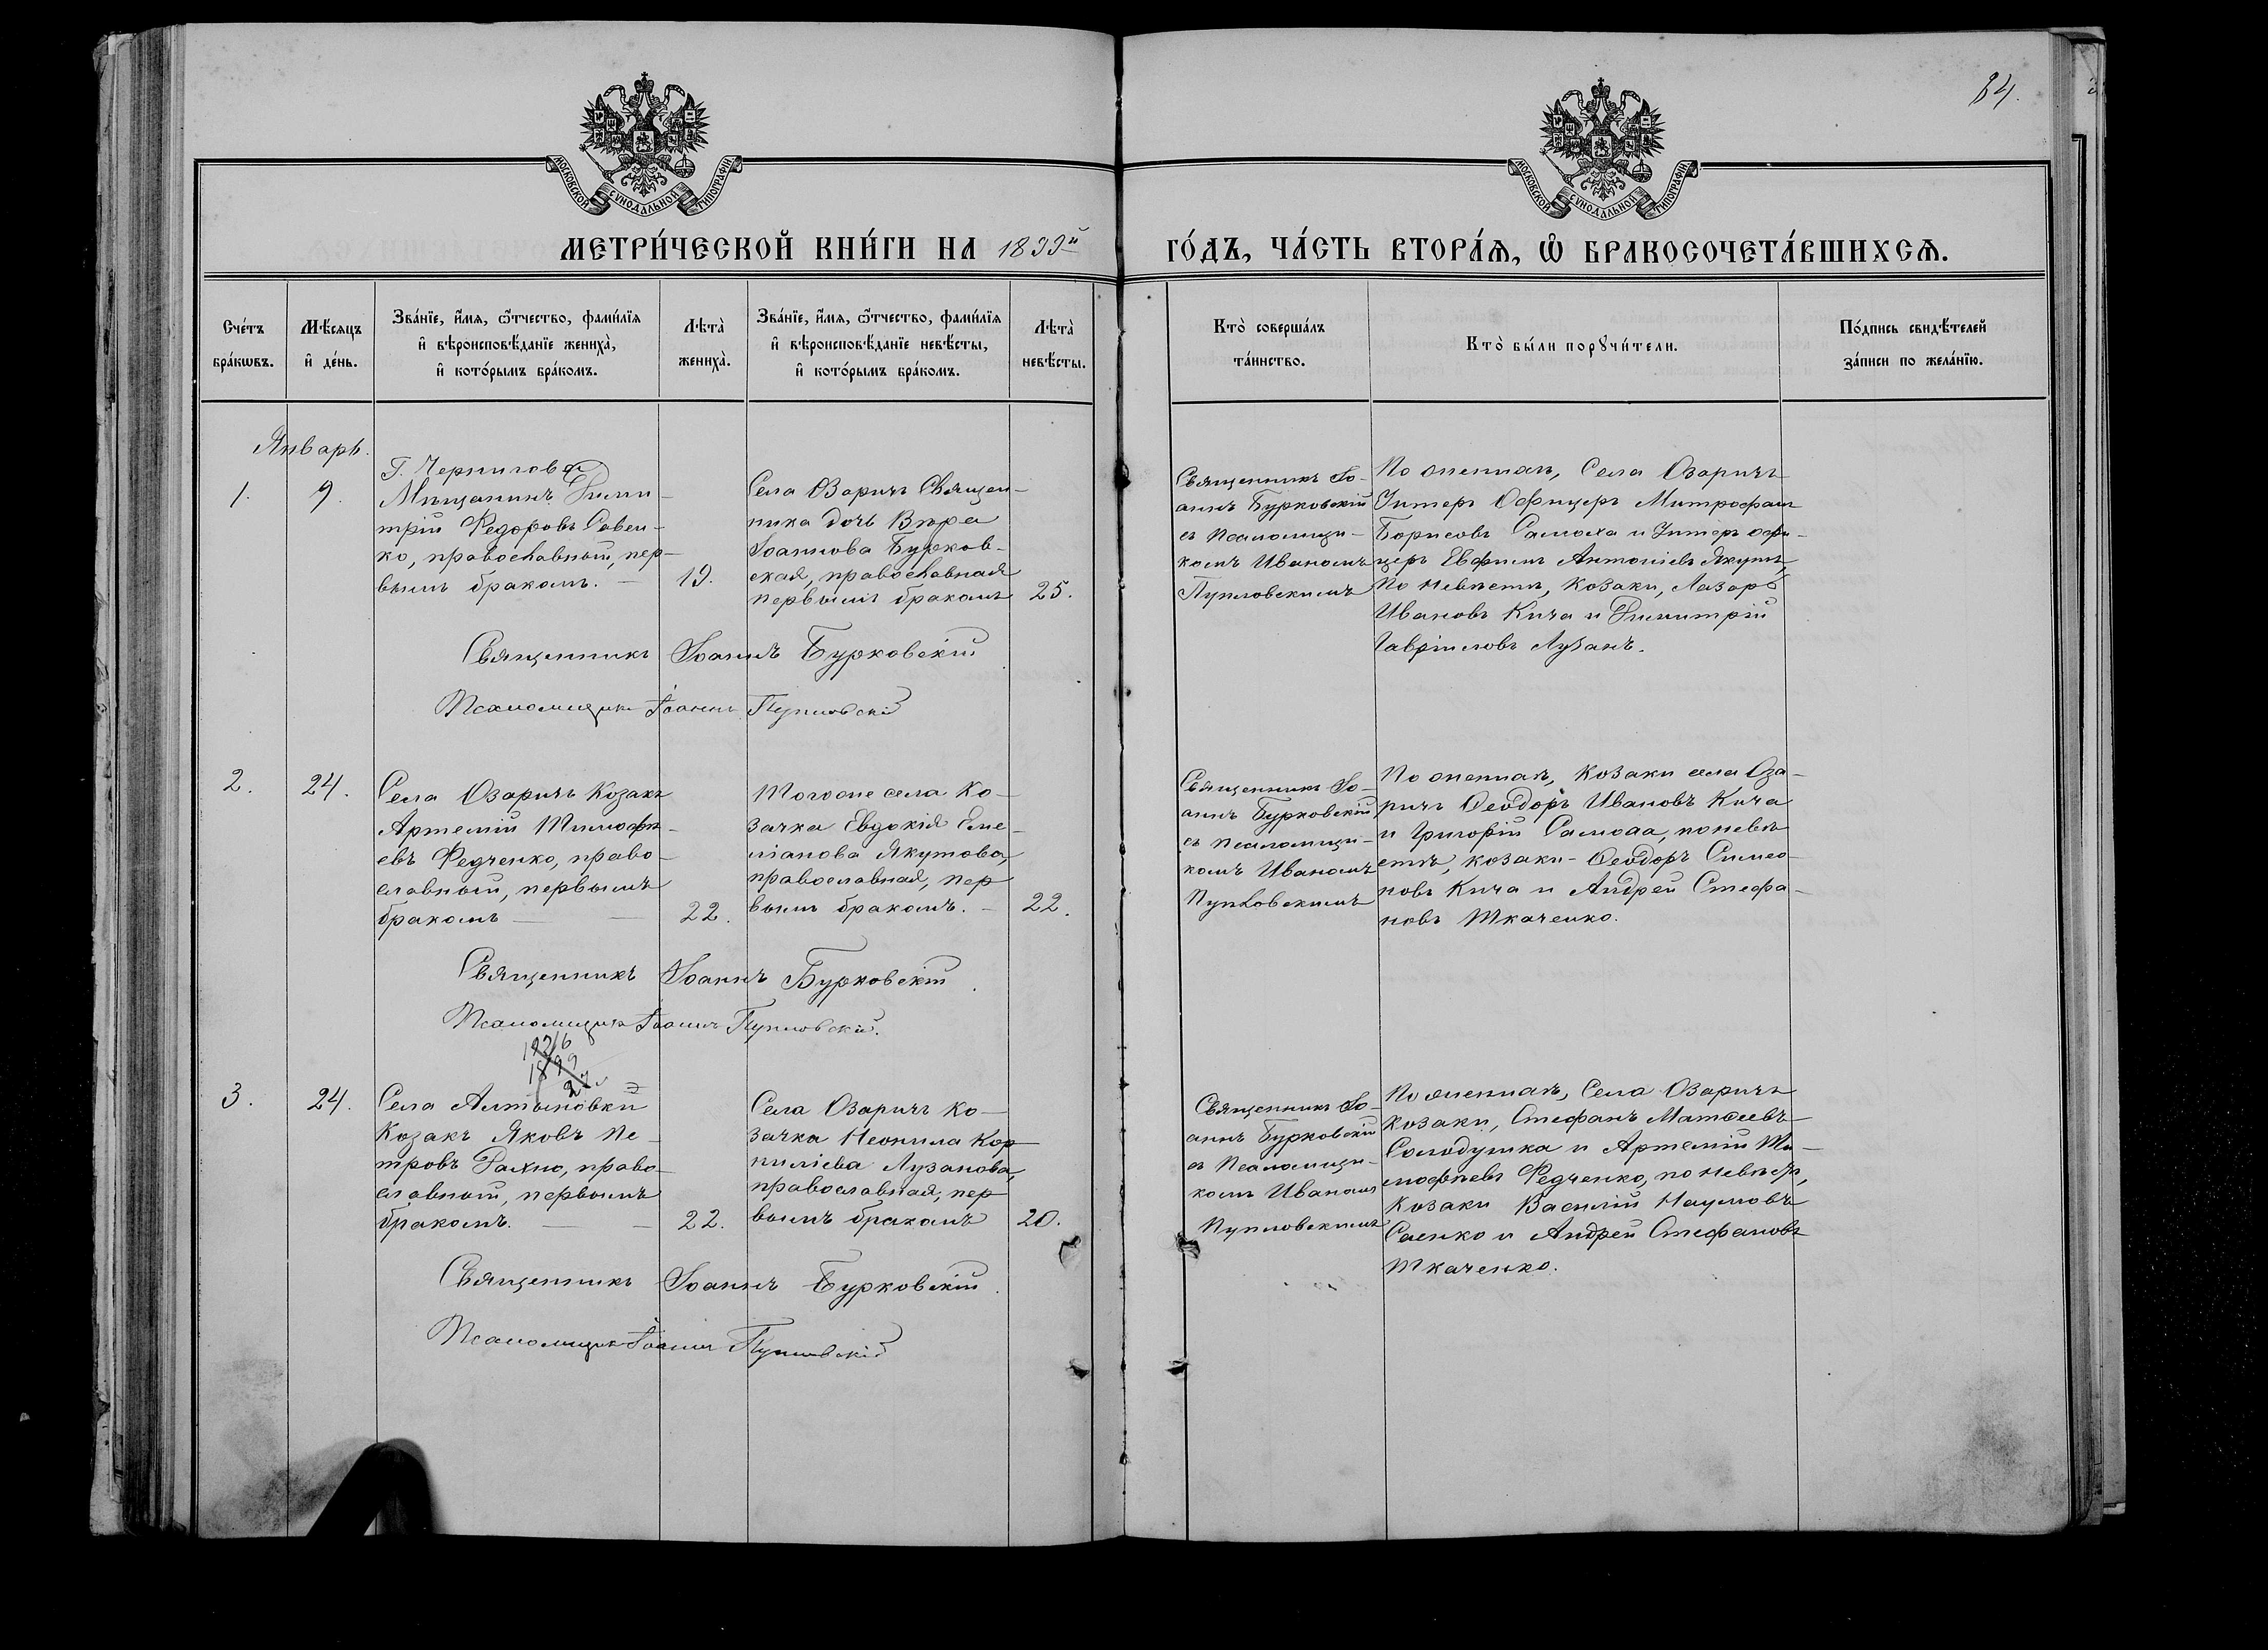 84.
МОСКОВСКОЙ СѴНОДАЛЬНОЙ ТИПОГРАФІИ
МОСКОВСКОЙ СѴНОДАЛЬНОЙ ТИПОГРАФІИ
МЕТРИ́ЧЕСКОЙ КНИ́ГИ НА 1899й
ГО́ДЪ, ЧА́СТЬ ВТОРА́Ѧ, Ѽ БРАКОСОЧЕТА́ВШИХСѦ.
Сче́тъ
бра́кѡвъ.
Мѣ́сяцъ
и҆ де́нь.
Зва́нїе, и҆́мѧ, ѻ҆́тчество, фами́лїѧ
и҆ вѣроисповѣ́данїе жениха̀,
и҆ кото́рымъ бра́комъ.
Лѣта̀
жениха̀.
Зва́нїе, и҆́мѧ, ѻ҆́тчество, фами́лїѧ
и҆ вѣроисповѣ́данїе невѣ́сты,
и҆ кото́рымъ бра́комъ.
Лѣта̀
невѣ́сты.
Кто̀ соверша́лъ
та́инство.
Кто̀ бы́ли порꙋчи́тели.
По́дпись свидѣ́телей
за́писи по жела́нїю.
Январь.
1.
9.
Г. Чернигова
Мѣщанинъ Дими-
трій Федоровъ Савен-
ко, православный, пер-
вымъ бракомъ. —
19.
Села Озаричъ Священ-
ника дочь Вѣра
Іоаннова Бурков-
ская, православная
первымъ бракомъ
25.
Священникъ Іо-
аннъ Бурковскій
съ Псаломщи-
комъ Иваномъ
Пупловскимъ
По женихѣ, Села Озаричъ
Унтеръ Офицеръ Митрофанъ
Борисовъ Самоха и Унтеръ офи-
церъ Евфимъ Антоніевъ Якутъ,
По невѣстѣ, козаки, Лазарь
Ивановъ Кича и Димитрій
Гавріиловъ Лузанъ.
Священникъ Іоаннъ Бурковскій
Псаломщикъ Іоаннъ Пупловскій
2.
24.
Села Озаричъ Козакъ
Артемій Тимофѣ-
евъ Федченко, право-
славный, первымъ
бракомъ —
22.
Тогоже села Ко-
зачка Евдокія Еме-
ліанова Якутова,
православная, пер
вымъ бракомъ. —
22.
Священникъ Іо-
аннъ Бурковскій
съ псаломщи-
комъ Иваномъ
Пупловскимъ
По женихѣ, Козаки села Оза-
ричъ Ѳеодоръ Ивановъ Кича
и Григорій Самоха, по невѣ
стѣ, козаки - Ѳеодоръ Симео-
новъ Кича и Андрей Стефа-
новъ Ткаченко.
Священникъ Іоаннъ Бурковскій
Псаломщикъ Іоаннъ Пупловскій.
3.
24.
Села Алтыновки
Козакъ Яковъ Пе-
тровъ Рахно, право-
славный, первымъ
бракомъ. —
22.
Села Озаричъ Ко-
зачка Неонила Кор
нилієва Лузанова,
православная, пер
вымъ бракомъ
20.
Священникъ Іо-
аннъ Бурковскій
съ Псаломщи-
комъ Иваномъ
Пупловскимъ
По женихѣ, Села Озаричъ
козаки, Стефанъ Матѳеевъ
Солодушка и Артемій Ти-
мофѣевъ Федченко, по невѣстѣ,
козаки Василій Наумовъ
Саенко и Андрей Стефановъ
Ткаченко.
Священникъ Іоаннъ Бурковскій
Псаломщикъ Іоаннъ Пупловскій